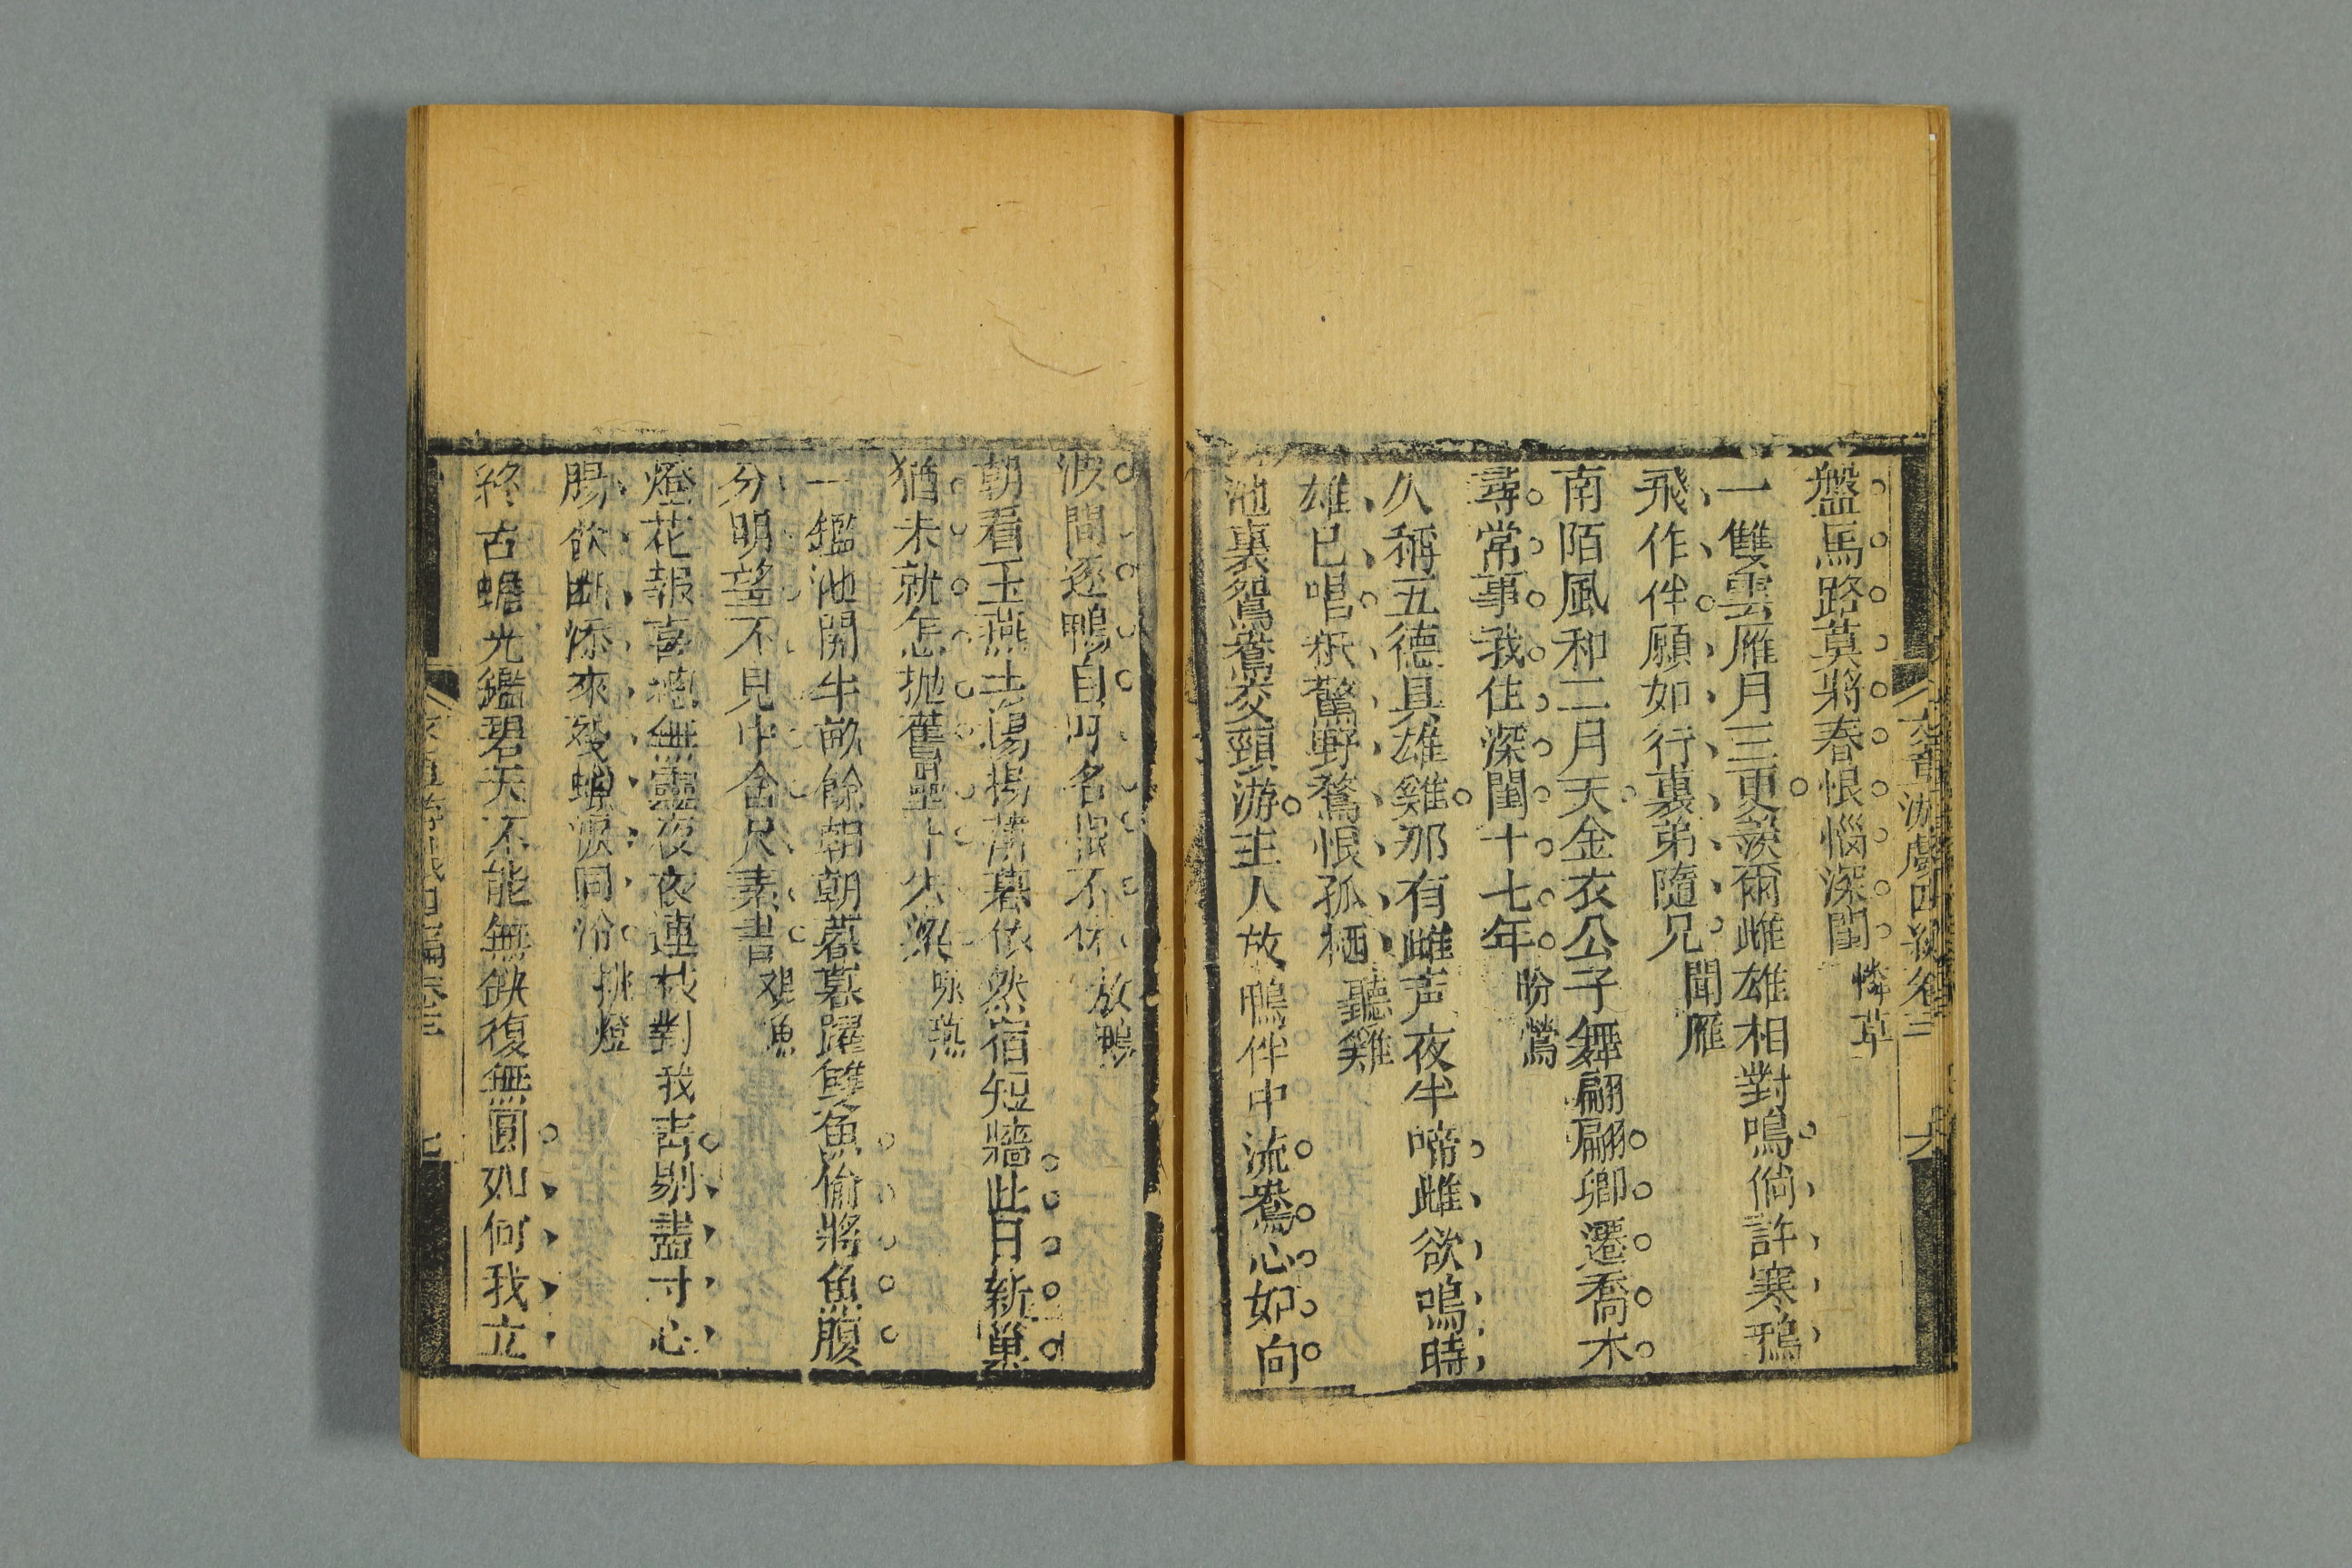 盤馬路莫將春恨惱深閨 憐草
一雙雲雁月三更羨爾雌雄相對鳴倘許寒鴉
飛作伴願如行裏弟隨兄 聞雁
南陌風和二月天金衣公子舞翩翩卿遷喬木
尋常事我住深閨十七年 盼鶯
久稱五德具雄雞那有雌声夜半啼雌欲鳴時
雄已唱秖驚野鶩恨孤栖 聽雞
池裏鴛鴦交頸游主人放鴨伴中流鴦心如向
波間逐鴨自呼名恨不休 放鴨
朝看玉燕去湯揚薄暮依然宿短牆此日新巢
猶未就怎抛舊壘十久梁 咏燕
一鑑池開半畝餘朝朝暮暮躍雙魚偷將魚腹
分明望不見中含尺素書 觀魚
燈花報喜總無靈夜夜連枝對我青剔盡寸心
腸欲斷添來殘蠟淚同泠 挑燈
終古蟾光鑑碧天不能無缺復無圓如何我立
游戲四編卷三 六
四編卷三 七